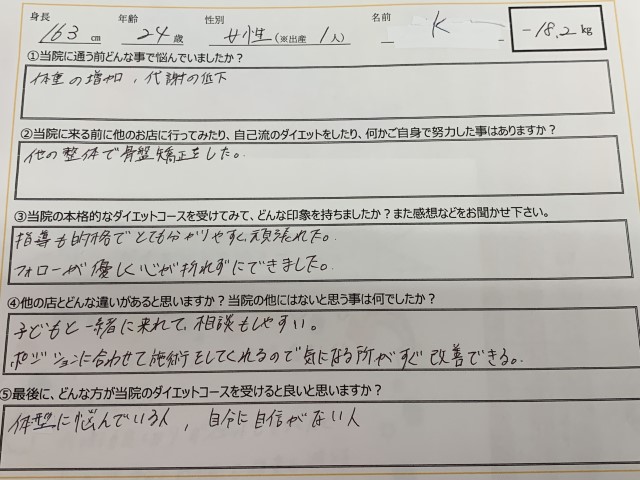 身長 163 cm 年齢 24 歳 性別 女性 (※出産 1人) 名前 K -18.2kg
①当院に通う前どんな事で悩んでいましたか？
体重の増加，代謝の低下
②当院に来る前に他のお店に行ってみたり、自己流のダイエットをしたり、何かご自身で努力した事はありますか？
他の整体で骨盤矯正をした。
③当院の本格的なダイエットコースを受けてみて、どんな印象を持ちましたか？また感想などをお聞かせ下さい。
指導も的格でとても分かりやすく頑張れた。
フォローが優しく心が折れずにできました。
④他の店とどんな違いがあると思いますか？当院の他にはないと思う事は何でしたか？
子どもと一緒に来れて、相談もしやすい。
ポジションに合わせて施術をしてくれるので気になる所がすぐ改善できる。
⑤最後に、どんな方が当院のダイエットコースを受けると良いと思いますか？
体型に悩んでいる人，自分に自信がない人